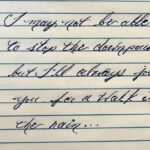 I may not be able
to stop the downpou
but I'll always jo
you for a walk
the rain...